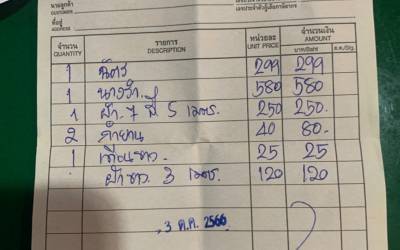 นามลูกค้า
CUSTOMER
ที่อยู่
ADDRESS
เลขประจำตัวผู้เสียภาษีอากร
จำนวน รายการ หน่วยละ จำนวนเงิน
QUANTITY DESCRIPTION UNIT PRICE AMOUNT
บาท/Baht ส.ต./Stg.
1 ฉัตร 299 299
1 นางรำ 580 580
1 ผ้า 7 สี 5 เมตร. 250 250.
2 กำยาน 40 80.-
1 เทียนขาว 25 25
ผ้าขาว 3 เมตร. 120 120
3 ต.ค. 2566